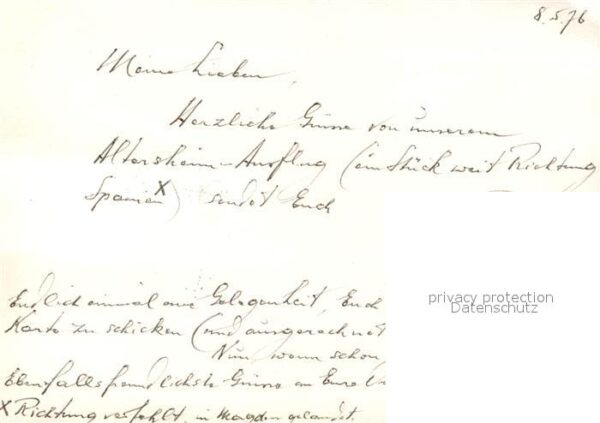 8.5.76
Meine Lieben,
Herzliche Grüsse von unserem
Altersheim-Ausflug (ein Stück weit Richtung
Spanien X) sendet Euch
privacy protection
Datenschutz
Endlich einmal eine Gelegenheit, Euch
Karte zu schicken (und ausgerechnet
Nun, wenn schon,
Ebenfalls freundlichste Grüsse an Eure
X Richtung verfehlt, in Magden gelandet.